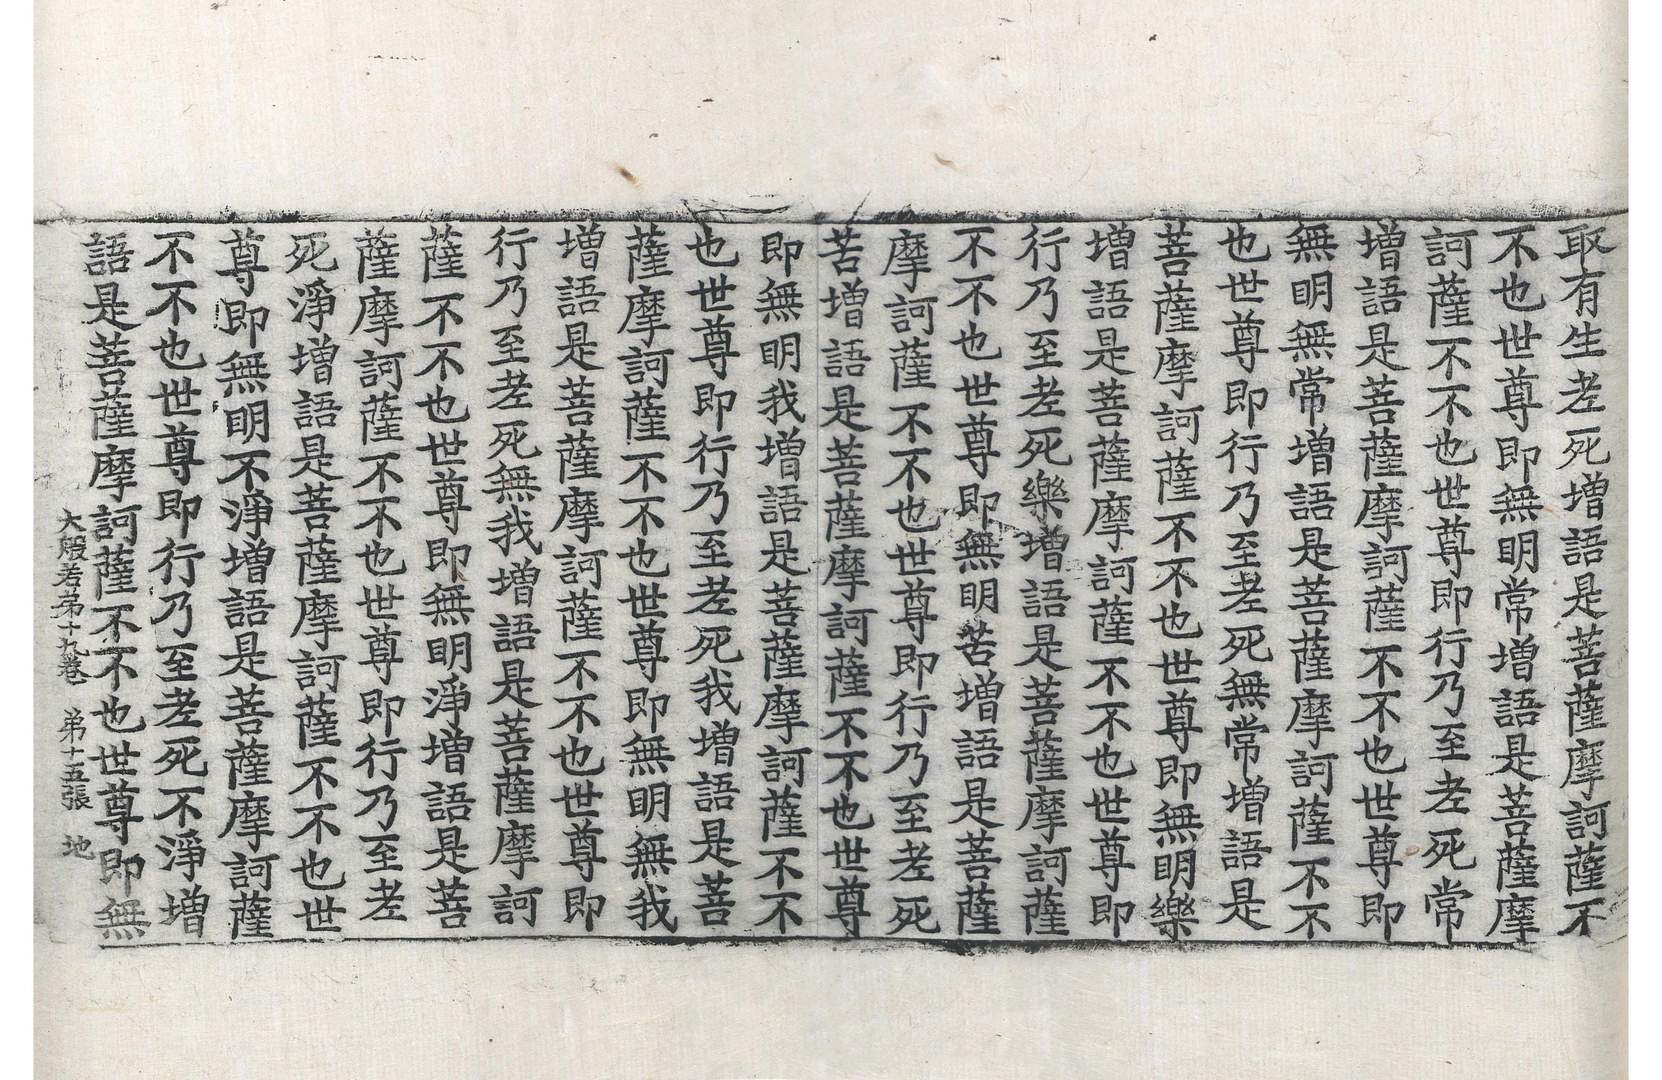 取有生老死增語是菩薩摩訶薩不
不也世尊即無明常增語是菩薩摩
訶薩不不也世尊即行乃至老死常
增語是菩薩摩訶薩不不也世尊即
無明無常增語是菩薩摩訶薩不不
也世尊即行乃至老死無常增語是
菩薩摩訶薩不不也世尊即無明樂
增語是菩薩摩訶薩不不也世尊即
行乃至老死樂增語是菩薩摩訶薩
不不也世尊即無明苦增語是菩薩
摩訶薩不不也世尊即行乃至老死
苦增語是菩薩摩訶薩不不也世尊
即無明我增語是菩薩摩訶薩不不
也世尊即行乃至老死我增語是菩
薩摩訶薩不不也世尊即無明無我
增語是菩薩摩訶薩不不也世尊即
行乃至老死無我增語是菩薩摩訶
薩不不也世尊即無明淨增語是菩
薩摩訶薩不不也世尊即行乃至老
死淨增語是菩薩摩訶薩不不也世
尊即無明不淨增語是菩薩摩訶薩
不不也世尊即行乃至老死不淨增
語是菩薩摩訶薩不不也世尊即無
大般若第十九卷 第十五張 地